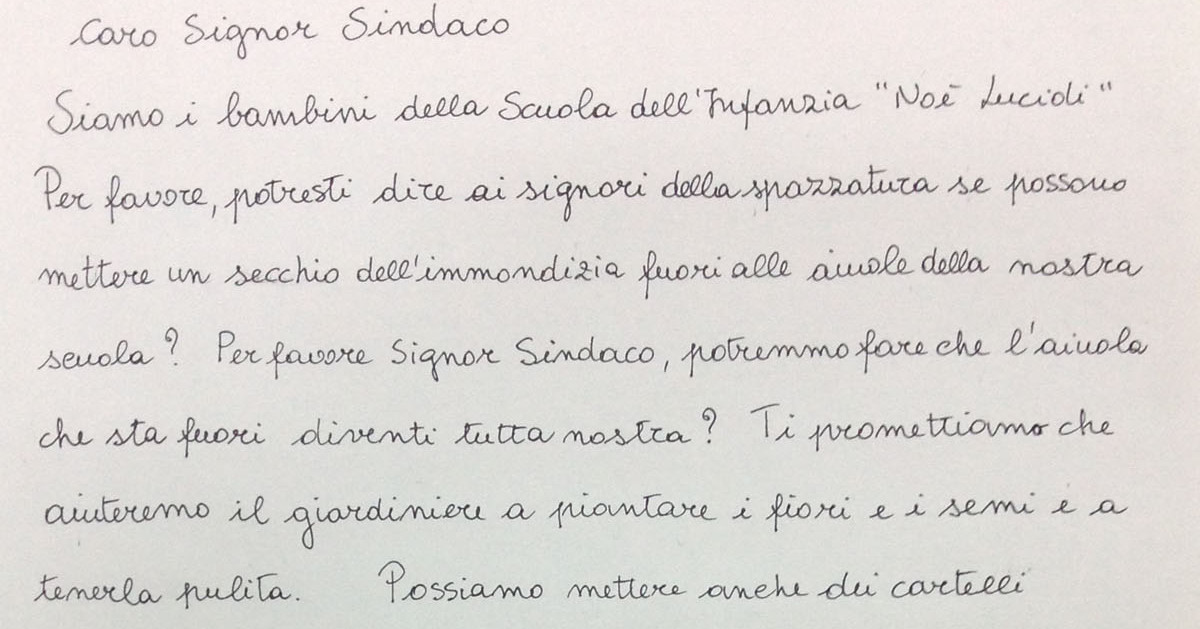 Caro Signor Sindaco
Siamo i bambini della Scuola dell'Infanzia "Noè Lucidi"
Per favore, potresti dire ai signori della spazzatura se possono
mettere un secchio dell'immondizia fuori alle aiuole della nostra
scuola? Per favore Signor Sindaco, potremmo fare che l'aiuola
che sta fuori diventi tutta nostra? Ti promettiamo che
aiuteremo il giardiniere a piantare i fiori e i semi e a
tenerla pulita. Possiamo mettere anche dei cartelli